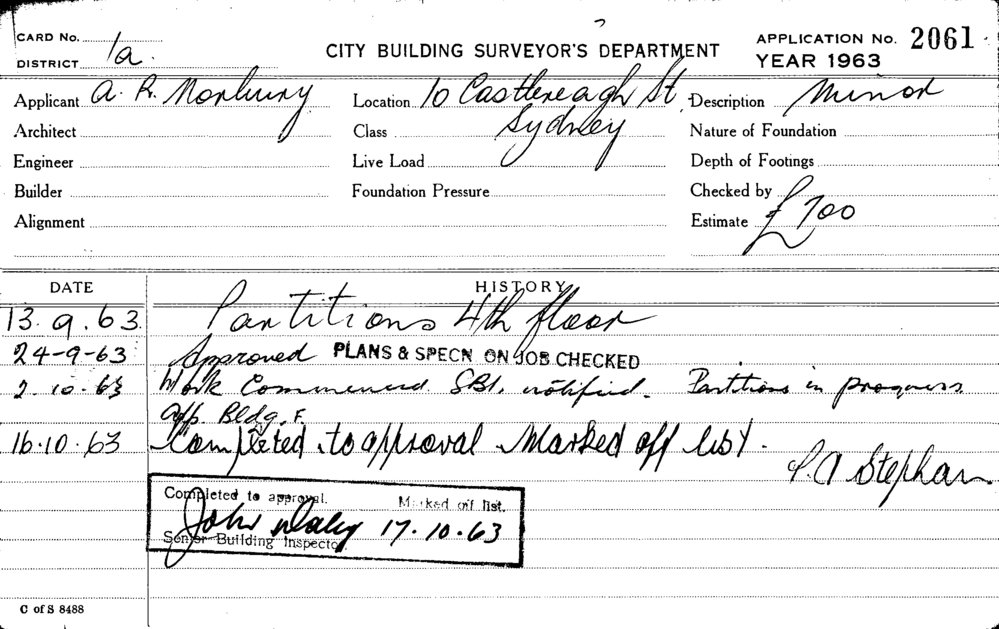 CARD No.
DISTRICT 1a.
CITY BUILDING SURVEYOR'S DEPARTMENT
APPLICATION No. 2061
YEAR 1963
Applicant A. R. Norbury Location 10 Castlereagh St, Description Minor
Architect Class Sydney Nature of Foundation
Engineer Live Load Depth of Footings
Builder Foundation Pressure Checked by
Alignment Estimate £700
DATE HISTORY
13.9.63. Partitions 4th floor
24-9-63 Approved PLANS & SPECN ON JOB CHECKED
2.10.63 Work Commenced. SBI. notified. Partitions in progress.
app. Bldg. F.
16.10.63 Completed to approval Marked off list.
P.A Stephan
Completed to approval. Marked off list.
John Daley 17.10.63
Senior Building Inspector.
C of S 8488